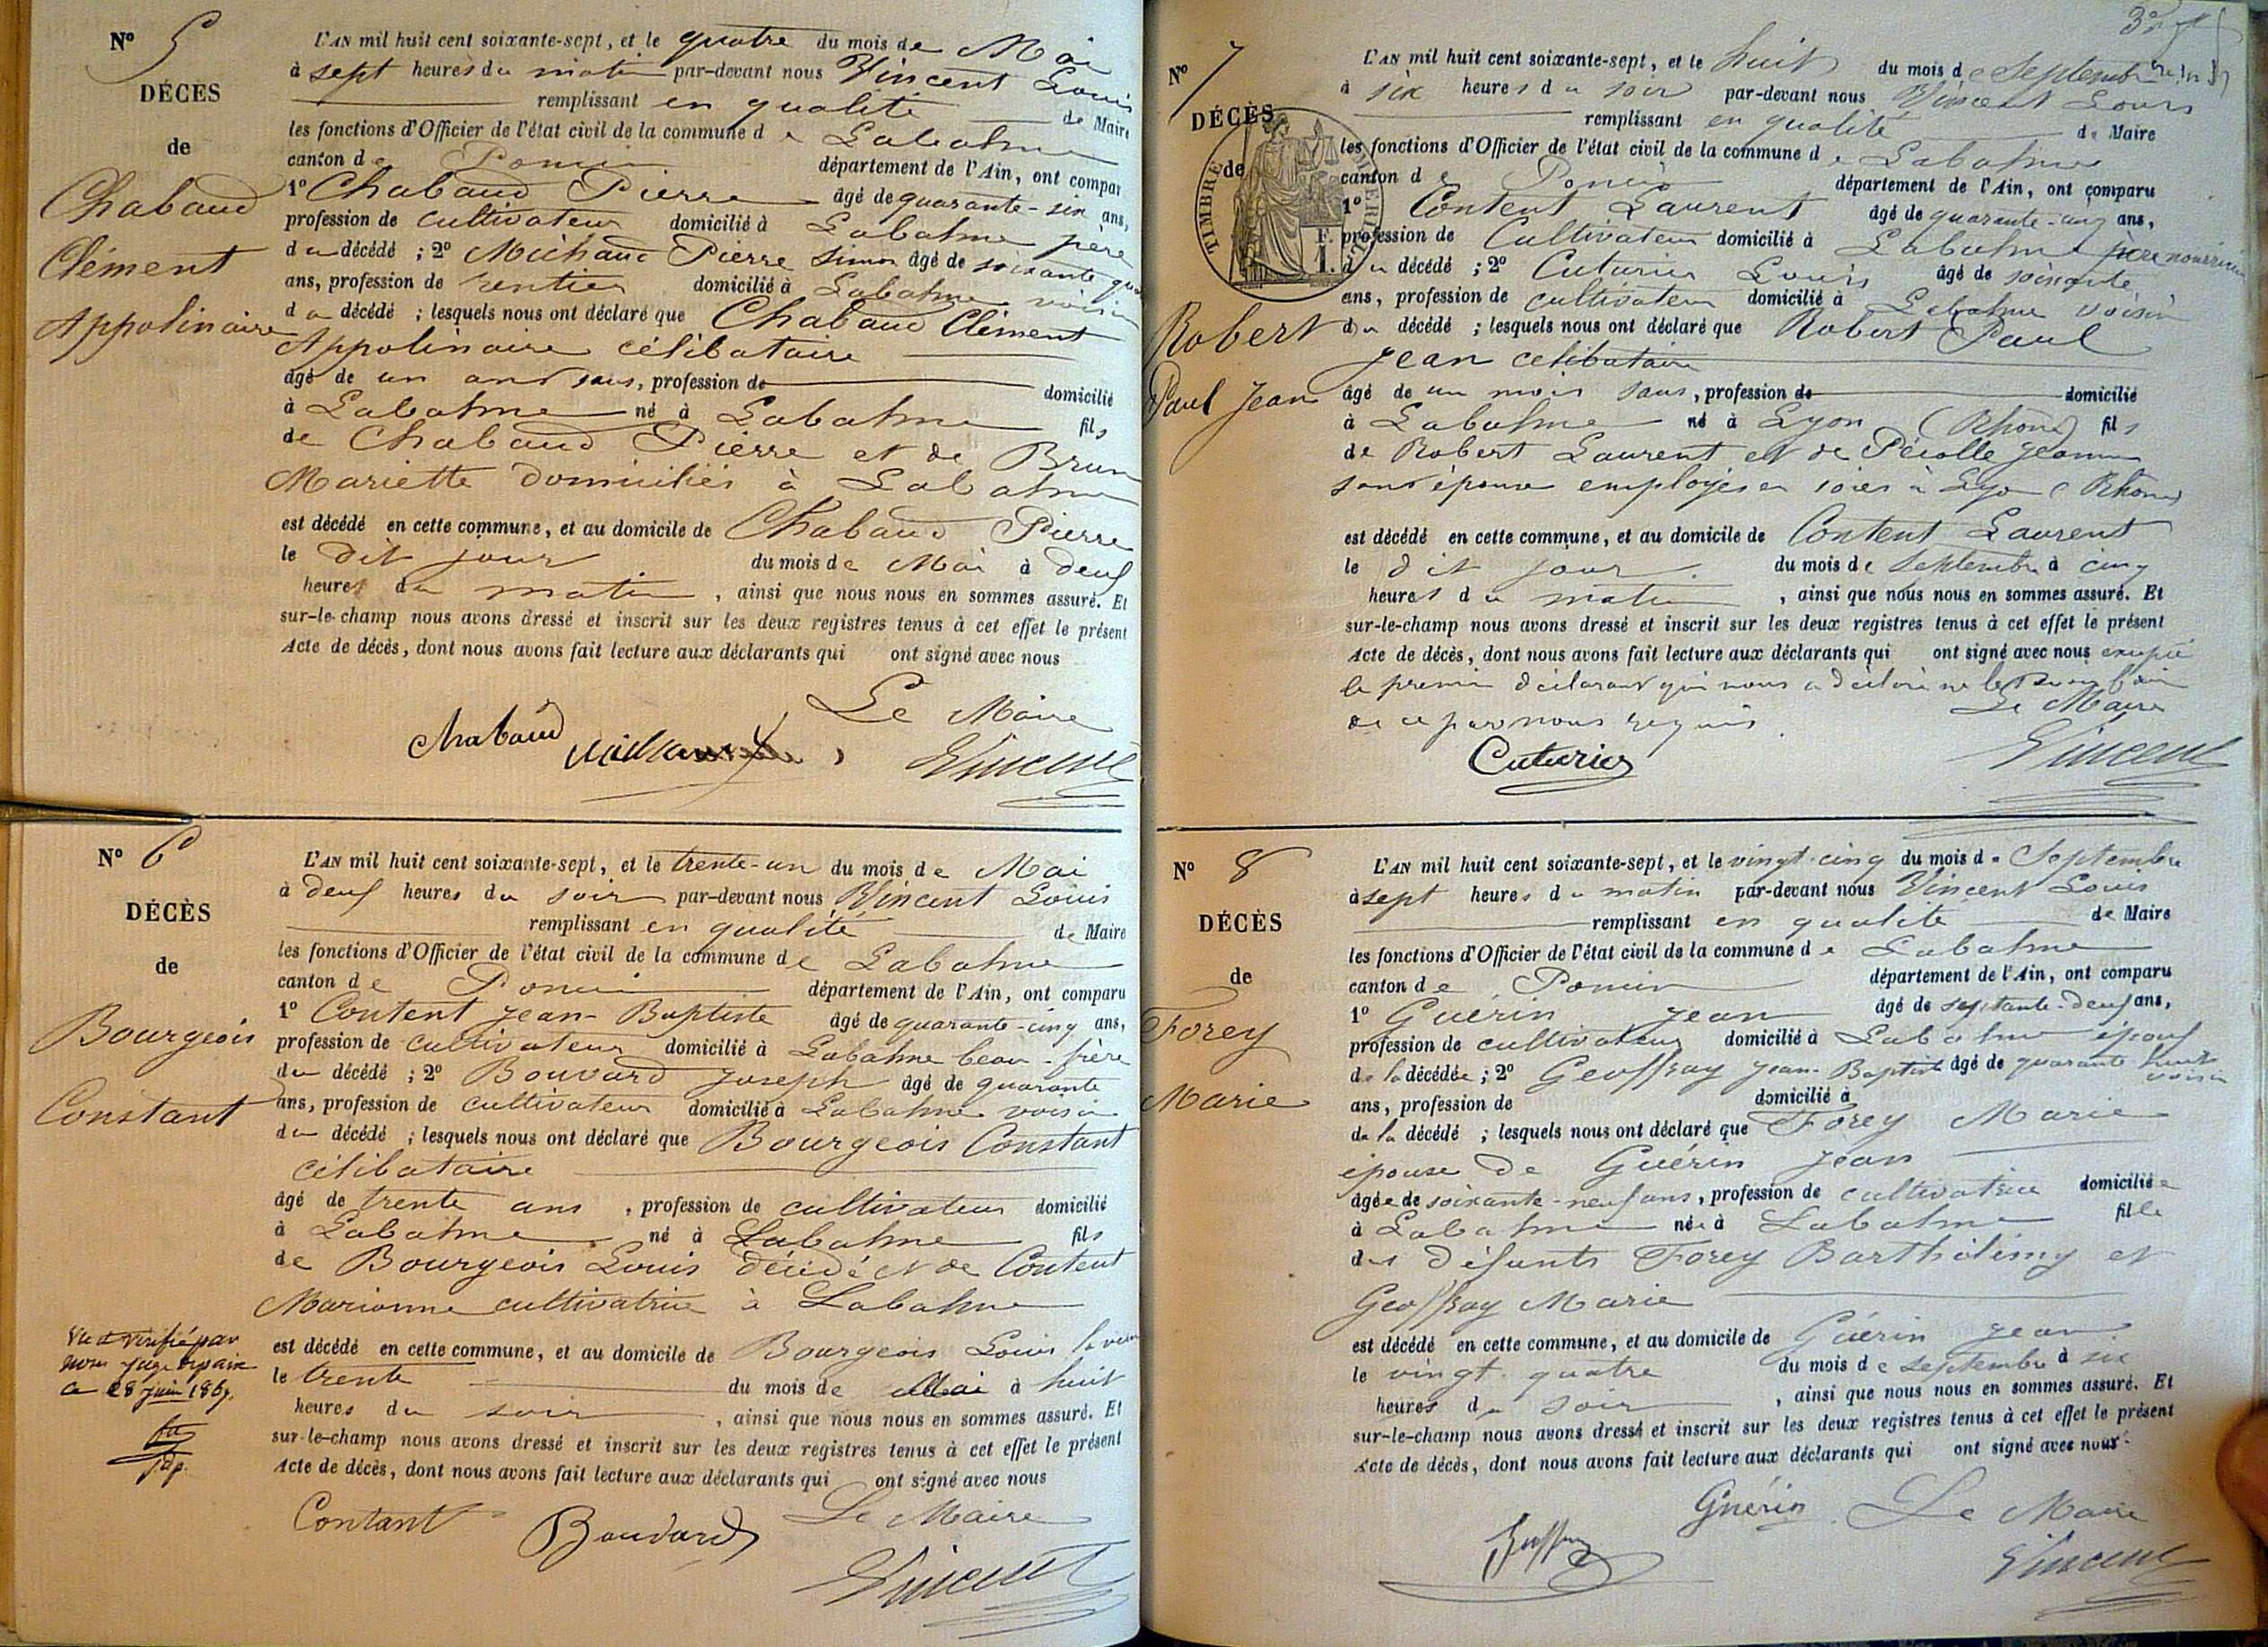 N° 5
DÉCÈS
de
Chabaud
Clément
Appolinaire
L'AN mil huit cent soixante-sept, et le quatre du mois de Mai
à sept heures du matin par-devant nous Vincent Louis
remplissant en qualité de Maire
les fonctions d'Officier de l'état civil de la commune de Labalme
canton de Poncin département de l'Ain, ont compar
1° Chabaud Pierre âgé de quarante-six ans,
profession de cultivateur domicilié à Labalme père
du décédé ; 2° Michaud Pierre Simon âgé de soixante
ans, profession de rentier domicilié à Labalme voisin
du décédé ; lesquels nous ont déclaré que Chabaud Clément
Appolinaire célibataire
âgé de un an sans, profession de domicilié
à Labalme né à Labalme fils
de Chabaud Pierre et de Brun
Mariette domiciliés à Labalme
est décédé en cette commune, et au domicile de Chabaud Pierre
le dit jour du mois de Mai à deux
heures du matin, ainsi que nous nous en sommes assuré. Et
sur-le-champ nous avons dressé et inscrit sur les deux registres tenus à cet effet le présent
Acte de décès, dont nous avons fait lecture aux déclarants qui ont signé avec nous
Le Maire
Chabaud Vincent
N° 6
DÉCÈS
de
Bourgeois
Constant
L'AN mil huit cent soixante-sept, et le trente-un du mois de Mai
à deux heures du soir par-devant nous Vincent Louis
remplissant en qualité de Maire
les fonctions d'Officier de l'état civil de la commune de Labalme
canton de Poncin département de l'Ain, ont comparu
1° Content Jean-Baptiste âgé de quarante-cinq ans,
profession de cultivateur domicilié à Labalme beau-frère
du décédé ; 2° Bouvard Joseph âgé de quarante
ans, profession de cultivateur domicilié à Labalme voisin
du décédé ; lesquels nous ont déclaré que Bourgeois Constant
célibataire
âgé de trente ans, profession de cultivateur domicilié
à Labalme né à Labalme fils
de Bourgeois Louis décédé et de Content
Marianne cultivatrice à Labalme
est décédé en cette commune, et au domicile de Bourgeois Louis
le trente du mois de Mai à huit
heures du soir, ainsi que nous nous en sommes assuré. Et
sur-le-champ nous avons dressé et inscrit sur les deux registres tenus à cet effet le présent
Acte de décès, dont nous avons fait lecture aux déclarants qui ont signé avec nous
Vu et vérifié par
nous juge de paix
ce 28 juin 1867.
Contant Bouvard Le Maire
Vincent
N° 7
DÉCÈS
de
TIMBRE IMPERIAL
F.
1.
Robert
Paul Jean
L'AN mil huit cent soixante-sept, et le huit du mois de Septembre
à six heures du soir par-devant nous Vincent Louis
remplissant en qualité de Maire
les fonctions d'Officier de l'état civil de la commune de Labalme
canton de Poncin département de l'Ain, ont comparu
1° Content Laurent âgé de quarante-cinq ans,
profession de Cultivateur domicilié à Labalme père nourricier
du décédé ; 2° Cuturier Louis âgé de soixante
ans, profession de cultivateur domicilié à Labalme voisin
du décédé ; lesquels nous ont déclaré que Robert Paul
Jean célibataire
âgé de un mois sans, profession de domicilié
à Labalme né à Lyon (Rhône) fils
de Robert Laurent et de Jeanne
son épouse employés à Lyon (Rhône)
est décédé en cette commune, et au domicile de Content Laurent
le dit jour du mois de Septembre à cinq
heures du matin, ainsi que nous nous en sommes assuré. Et
sur-le-champ nous avons dressé et inscrit sur les deux registres tenus à cet effet le présent
Acte de décès, dont nous avons fait lecture aux déclarants qui ont signé avec nous excepté
le premier déclarant qui nous a déclaré ne le savoir faire
de ce par nous requis.
Le Maire
Cuturier Vincent
N° 8
DÉCÈS
de
Forey
Marie
L'AN mil huit cent soixante-sept, et le vingt-cinq du mois de Septembre
à sept heures du matin par-devant nous Vincent Louis
remplissant en qualité de Maire
les fonctions d'Officier de l'état civil de la commune de Labalme
canton de Poncin département de l'Ain, ont comparu
1° Guérin Jean âgé de septante-deux ans,
profession de cultivateur domicilié à Labalme époux
de la décédée ; 2° Geoffray Jean-Baptiste âgé de quarante huit
voisin
ans, profession de domicilié à
de la décédé ; lesquels nous ont déclaré que Forey Marie
épouse de Guérin Jean
âgée de soixante-neuf ans, profession de cultivatrice domiciliée
à Labalme née à Labalme fille
des défunts Forey Barthélémy et
Geoffray Marie
est décédé en cette commune, et au domicile de Guérin Jean
le vingt-quatre du mois de Septembre à six
heures du soir, ainsi que nous nous en sommes assuré. Et
sur-le-champ nous avons dressé et inscrit sur les deux registres tenus à cet effet le présent
Acte de décès, dont nous avons fait lecture aux déclarants qui ont signé avec nous.
Guérin Le Maire
Vincent